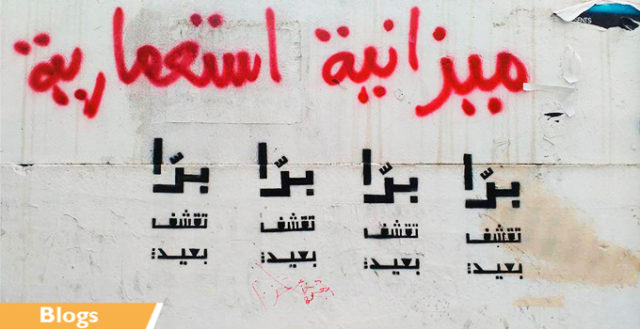 ميزانية استعمارية
برّا برّا برّا برّا
تقشف تقشف تقشف تقشف
بعيد بعيد بعيد بعيد
Blogs